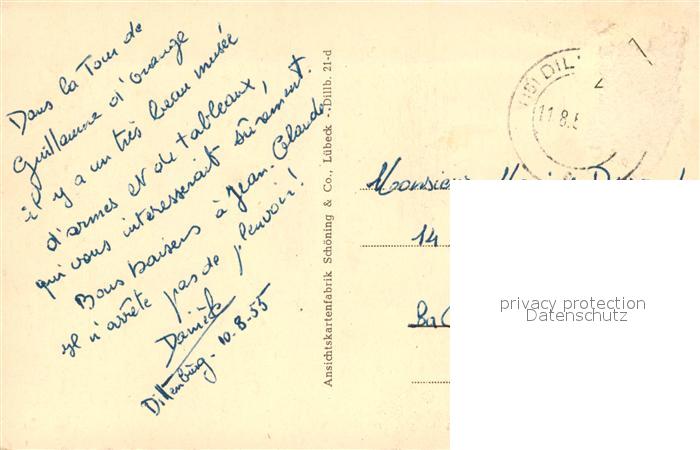 Dans la Tour de
Guillaume d'Orange
il y a un très beau musée
d'armes et de tableaux,
qui vous intéresserait sûrement.
Bons baisers à Jean-Claude
Il n'arrête pas de pleuvoir!
Danièle
Dillenburg - 10-8-55
Ansichtskartenfabrik Schöning & Co., Lübeck - Dillb. 21-d
(16) DIL
11.8.5
Monsieur
14
privacy protection
Datenschutz